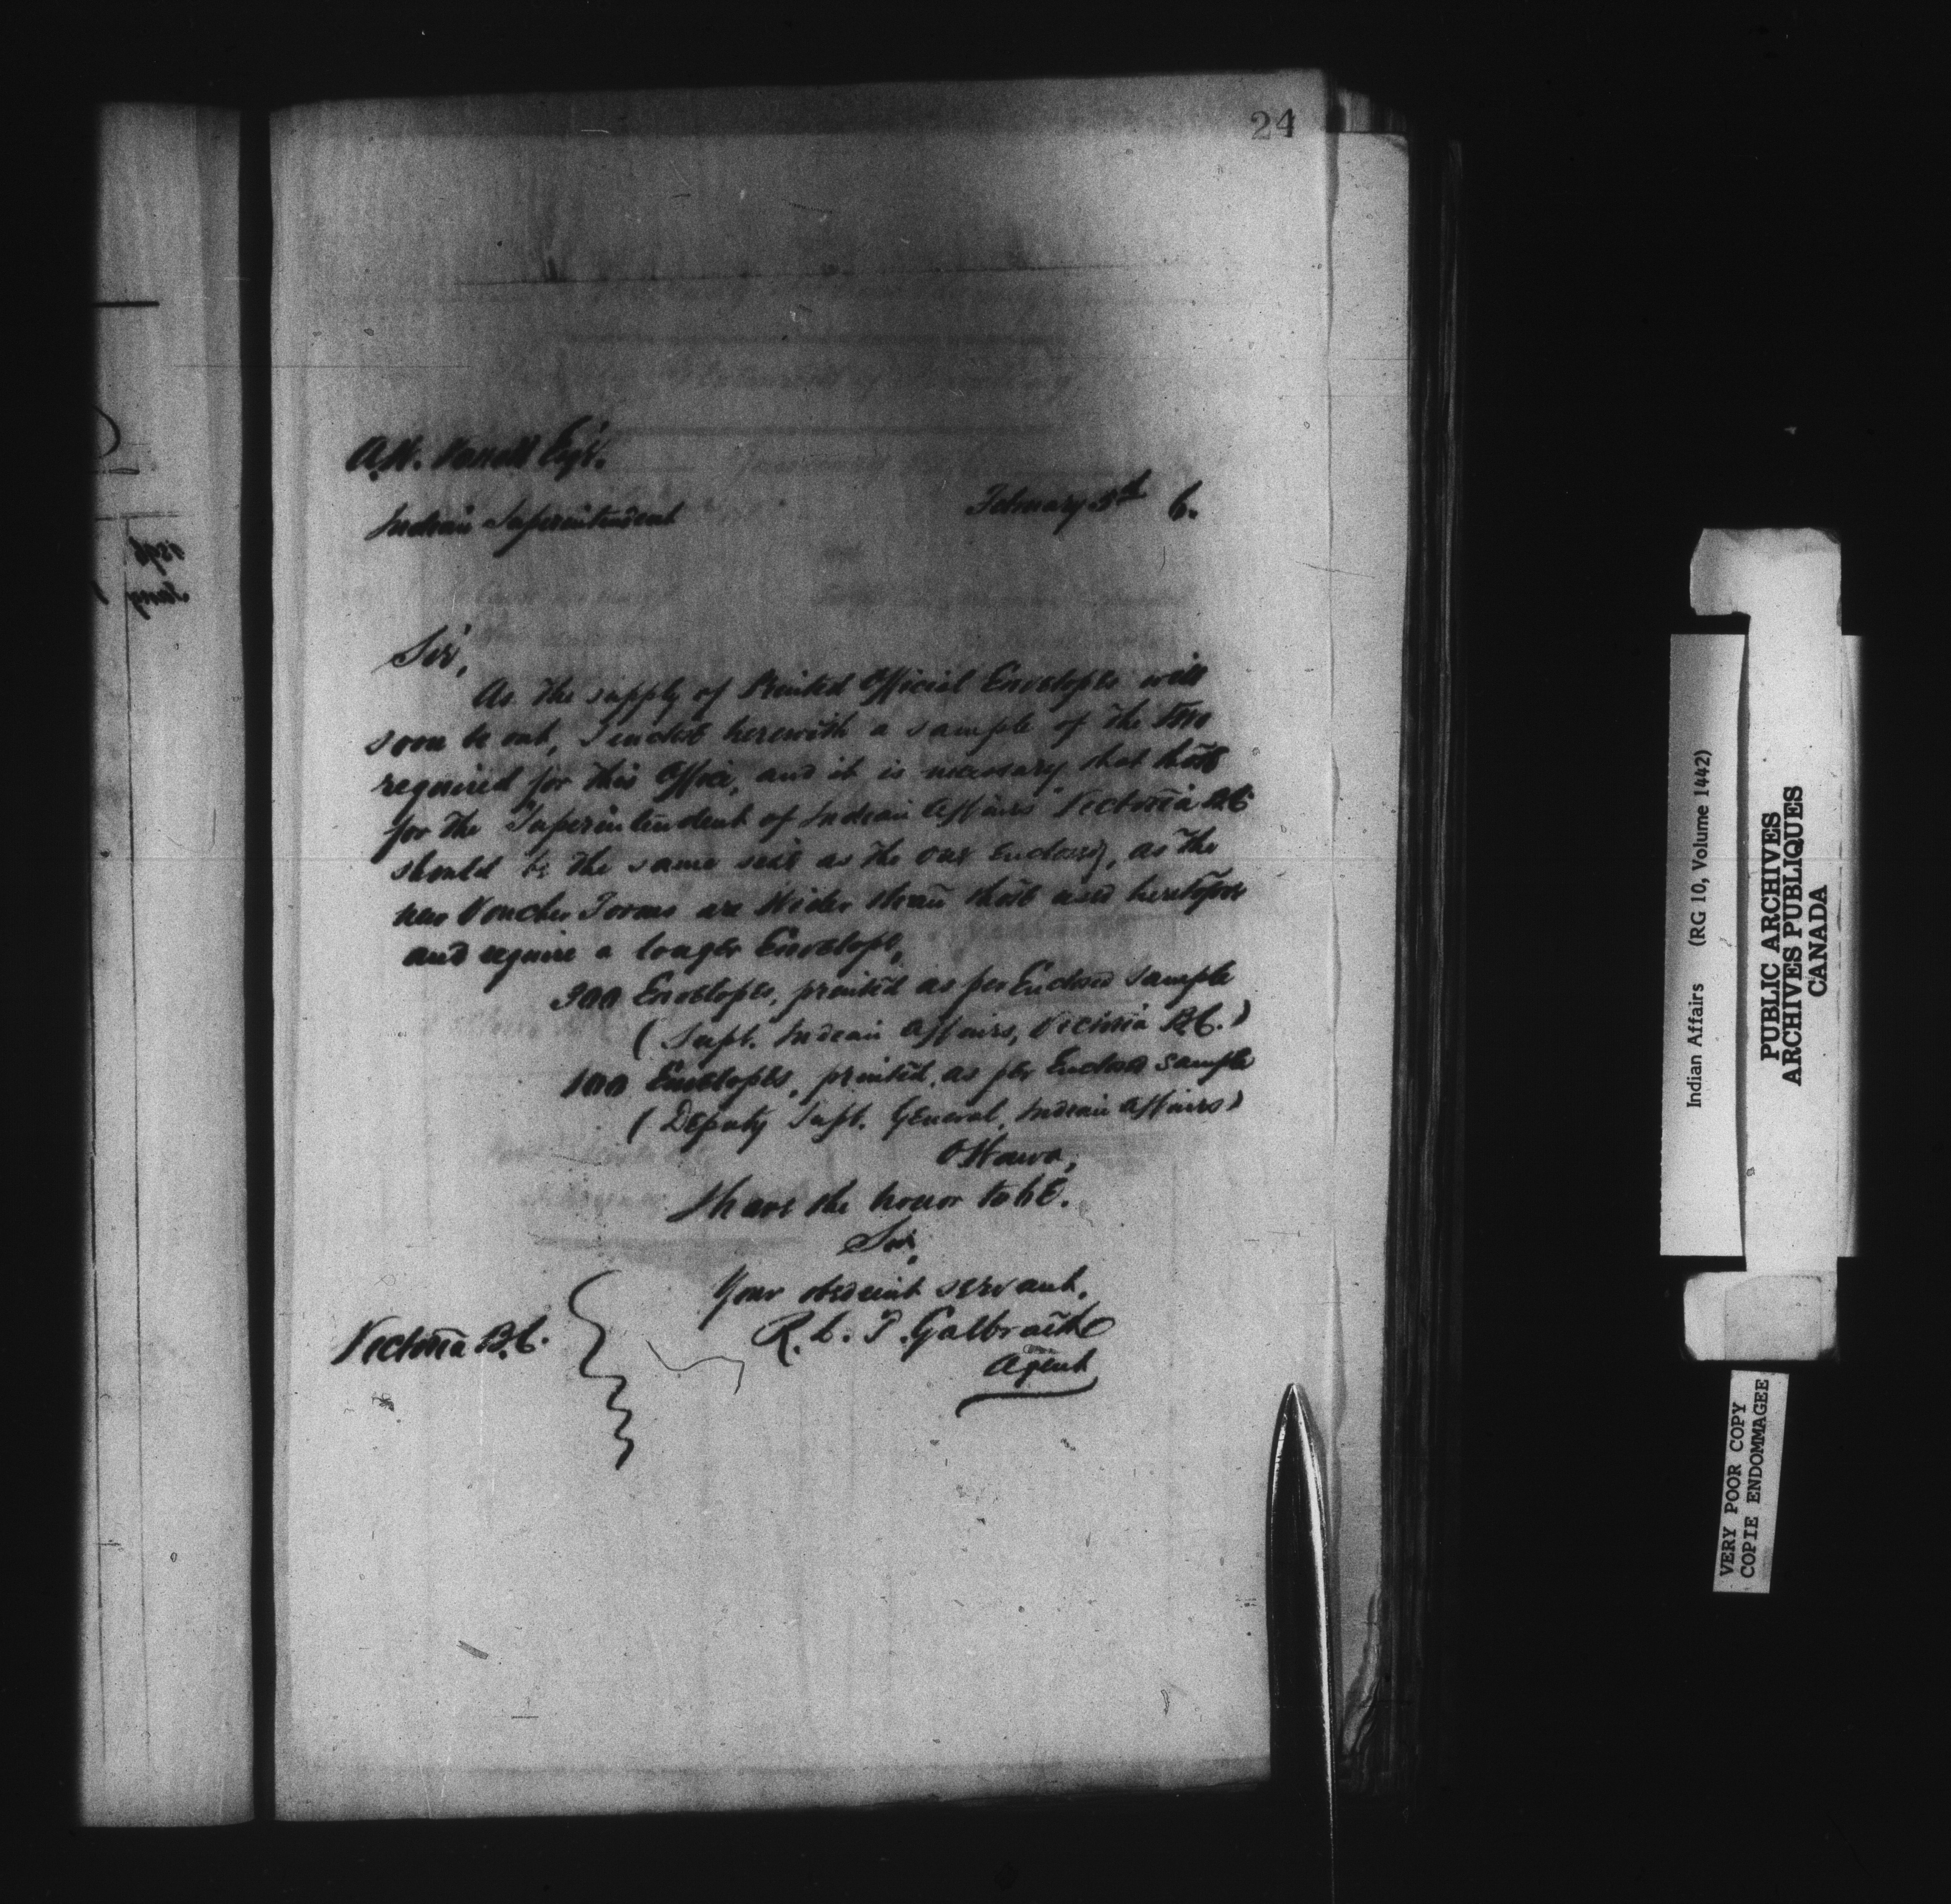 24
A.W. Vowell Esqr.
Indian Superintendent
February 5th 6.
Sir,
As the supply of Printed Official Envelopes will
soon be out, I enclose herewith a sample of the two
required for this Office, and it is necessary that those
for the Superintendent of Indian Affairs Victoria B.C.
should be the same size as the one Enclosed, as the
new Voucher Forms are Wider than those used heretofore
and require a longer Envelope,
300 Envelopes, printed as per Enclosed Sample
(Supt. Indian Affairs, Victoria B.C.)
100 Envelopes, printed, as per Enclosed Sample
(Deputy Supt. General, Indian Affairs)
Ottawa,
I have the honor to bE.
Sir,
Your obedient servant.
R. L. T. Galbraith
Agent
Victoria B.C.
1896
Jany
Indian Affairs (RG 10, Volume 1442)
PUBLIC ARCHIVES
ARCHIVES PUBLIQUES
CANADA
VERY POOR COPY
COPIE ENDOMMAGEE